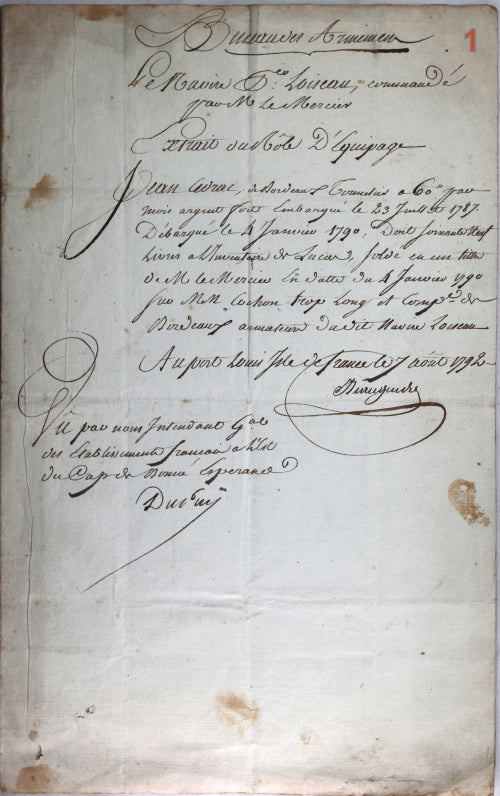 Bureau des Armemens
1
Le Navire Le Loiseau, commandé
par M Le Mercier
Extrait du Rôle D'Equipage
Jean de Bordeaux Tonnelier a 60 par
mois argent fort Embarqué le 23 Juillet 1787.
Débarqué le 4 Janvier 1790, Doit Soixante Neuf
Livres a L'Inventaire de Lucas, soldé en un billet
de M Le Mercier En datte du 4 Janvier 1790
sur MM Cochon trop Long et Comp.e de
Bordeaux armateurs du dit Navire Loiseau
Au port Louis Isle de france le 7 août 1792
Vû par nous Intendant G.al
des Etablissements francais a L'Est
du Cap de Bonne Esperance
Dupuy